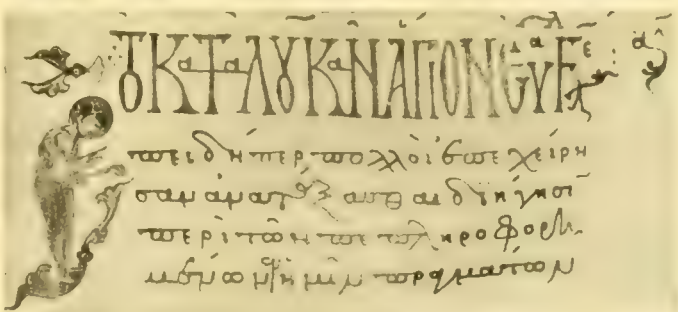 ΤΟ ΚΑΤΑ ΛΟΥΚΑΝ ΑΓΙΟΝ ΕΥΑΓΓΕ
Ἐπειδήπερ πολλοὶ ἐπεχείρη
σαν ἀνατάξασθαι διήγησι
περὶ τῶν πεπληροφορη
μένων ἐν ἡμῖν πραγμάτων